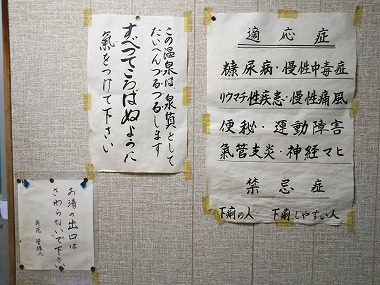 適応症
糖尿病・慢性中毒症
リウマチ性疾患・慢性痛風
便秘・運動障害
氣管支炎・神経マヒ
禁忌症
下痢の人・下痢しやすい人
この温泉は、泉質として
たいへんつるつるします
すべってころばぬように
氣をつけて下さい
お湯の出口は
さわらないで下さい
管理人